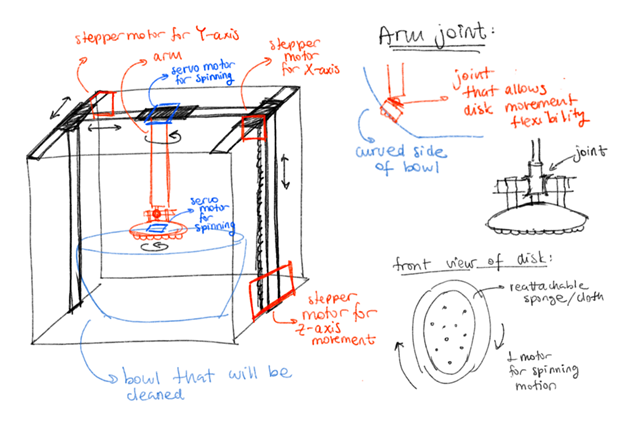 stepper motor for Y-axis
arm
servo motor
for spinning
stepper
motor
for X-axis
servo
motor
for
spinning
stepper
motor for
Z-axis
movement
bowl that will be
cleaned
Arm joint:
joint
that allows
disk movement
flexibility
curved side
of bowl
joint
front view of disk:
reattachable
sponge/cloth
1 motor
for spinning
motion